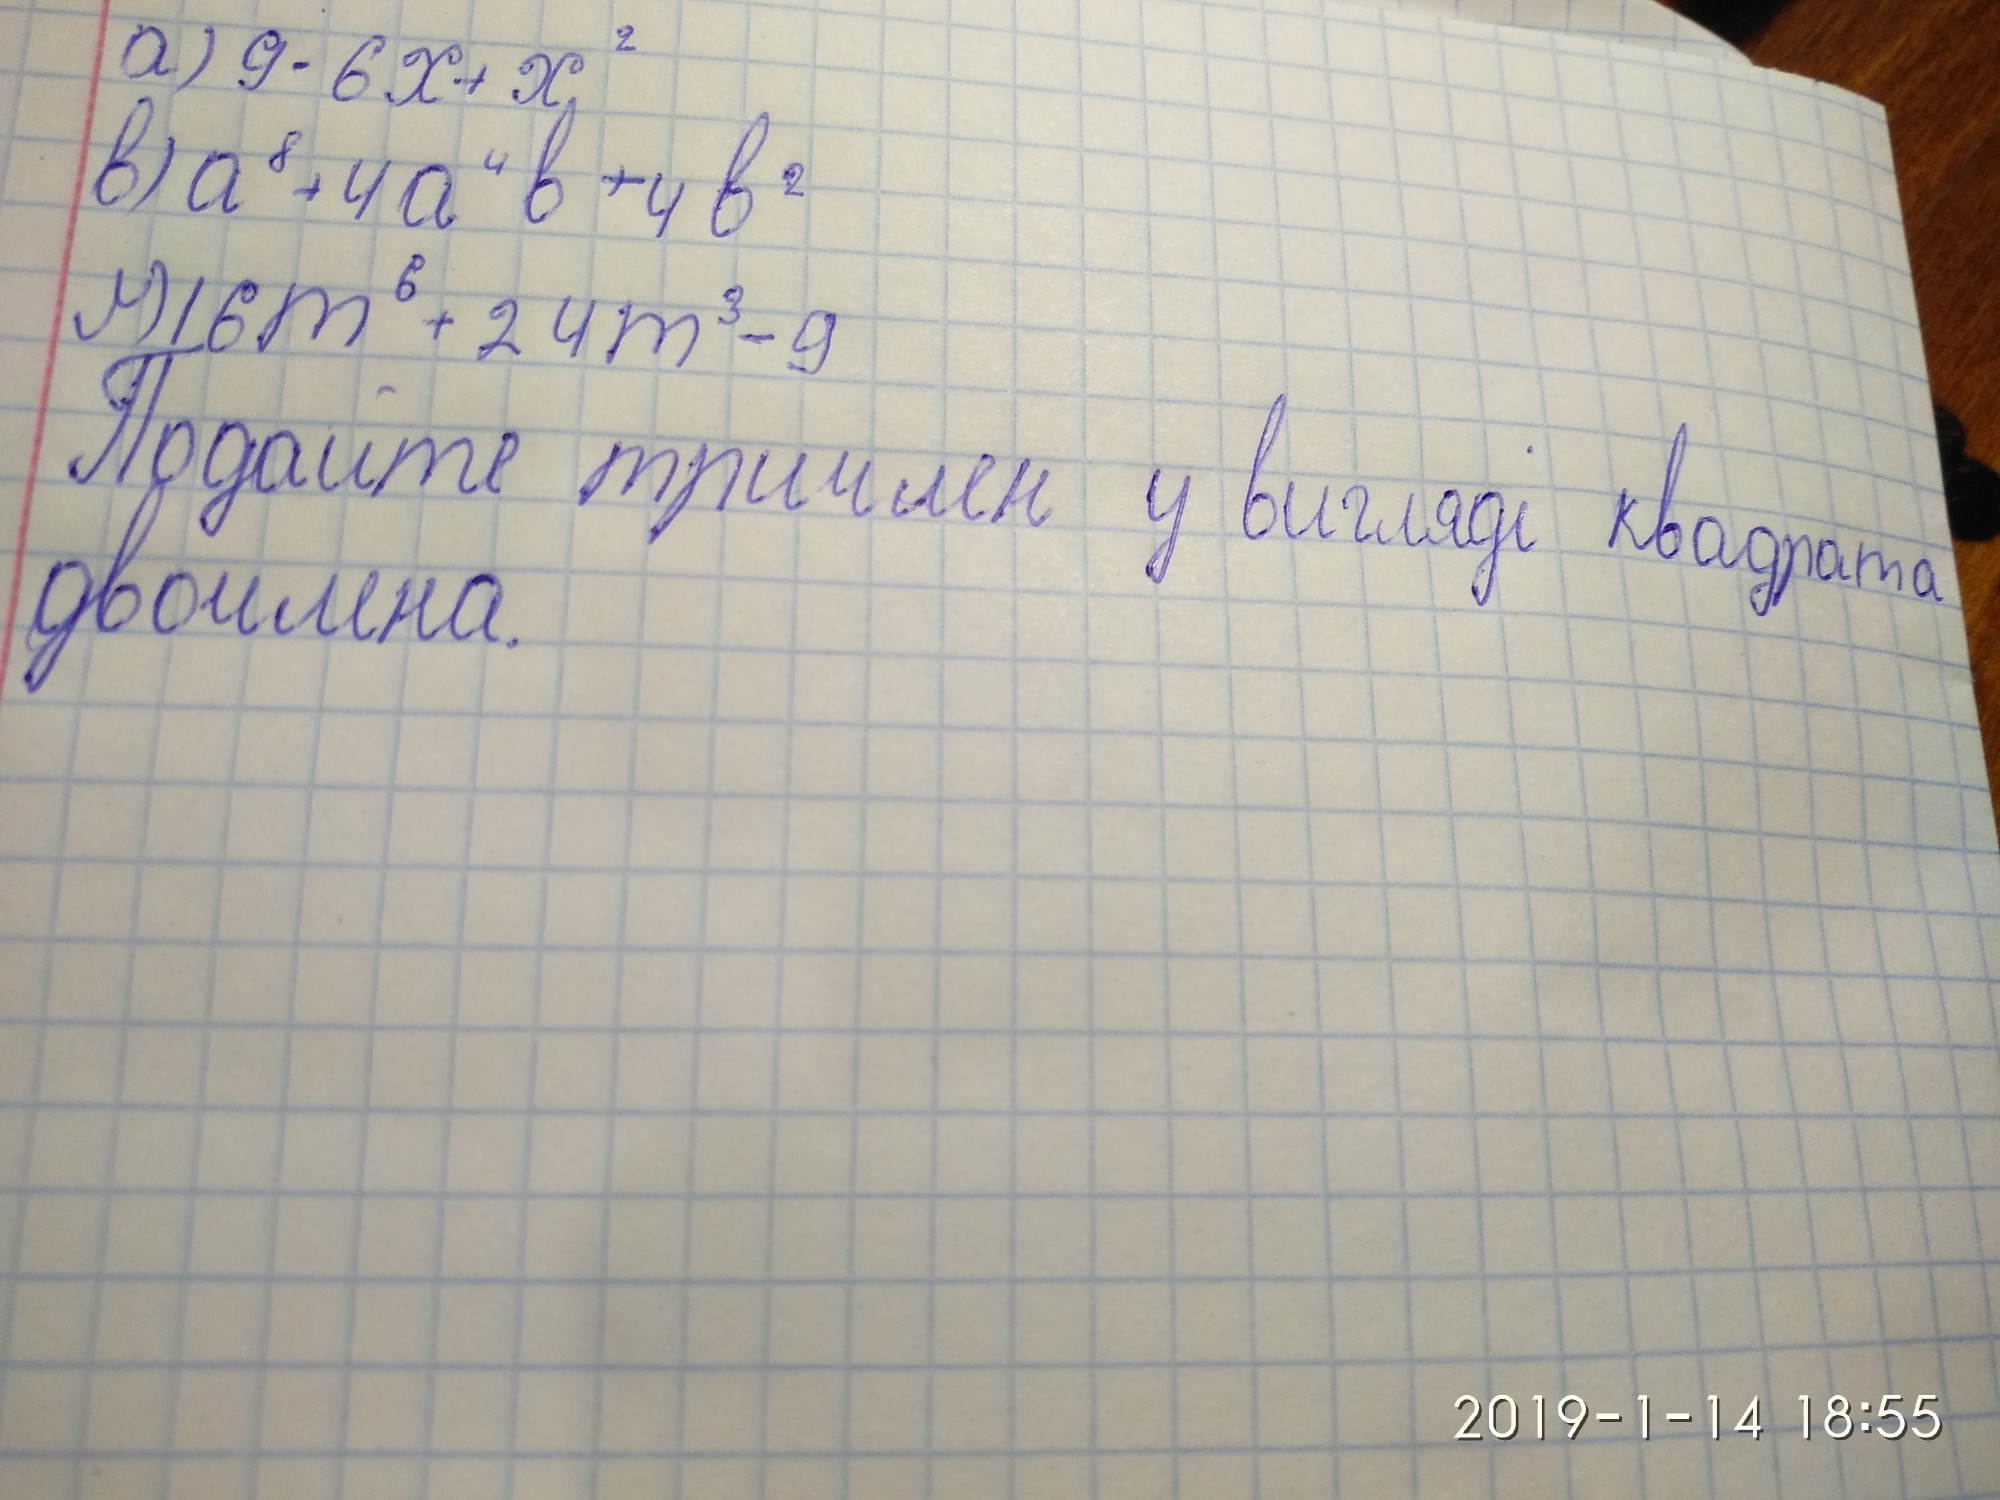 а) 9 - 6x + x²
в) a⁸ + 4a⁴b + 4b²
м) 16m⁶ + 24m³ - 9
Подайте тричлен у вигляді квадрата
двочлена.
2019-1-14 18:55